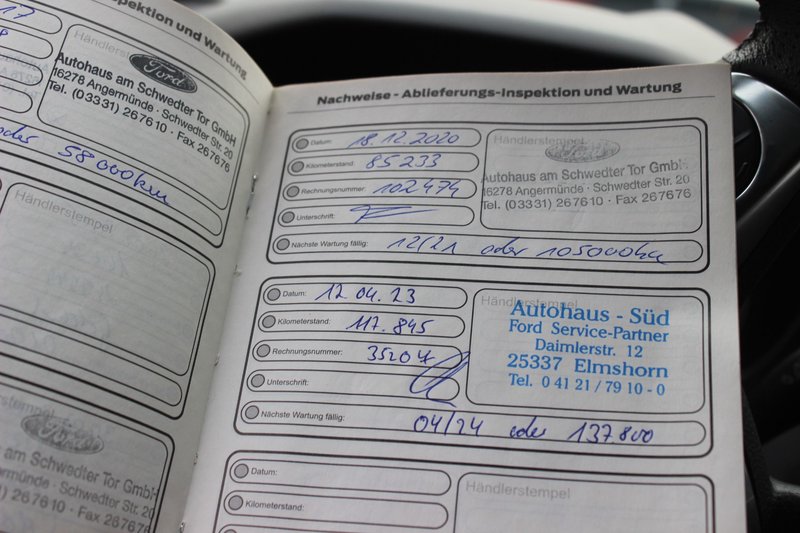 pektion und Wartung
17
Händlerstem
Ford
Autohaus am Schwedter Tor GmbH
16278 Angermünde · Schwedter Str. 20
Tel. (03331) 267610 · Fax 267676
oder 58000km
Händlerstempel
Ford
am Schwedter Tor Gmb
Angermünde · Schwedter Str. 20
1) 267610 · Fax 267676
Nachweise - Ablieferungs-Inspektion und Wartung
Datum: 18.12.2020
Kilometerstand: 85233
Rechnungsnummer: 102474
Unterschrift:
Nächste Wartung fällig: 12/21 oder 105000km
Händlerstempel
Ford
Autohaus am Schwedter Tor Gmb
16278 Angermünde · Schwedter Str. 20
Tel. (03331) 267610 · Fax 267676
Datum: 12.04.23
Kilometerstand: 117.845
Rechnungsnummer: 35204
Unterschrift:
Nächste Wartung fällig: 04/24 oder 137.800
Händlerstempel
Autohaus - Süd
Ford Service-Partner
Daimlerstr. 12
25337 Elmshorn
Tel. 0 41 21 / 79 10 - 0
Datum:
Kilometerstand:
Händlerstempel